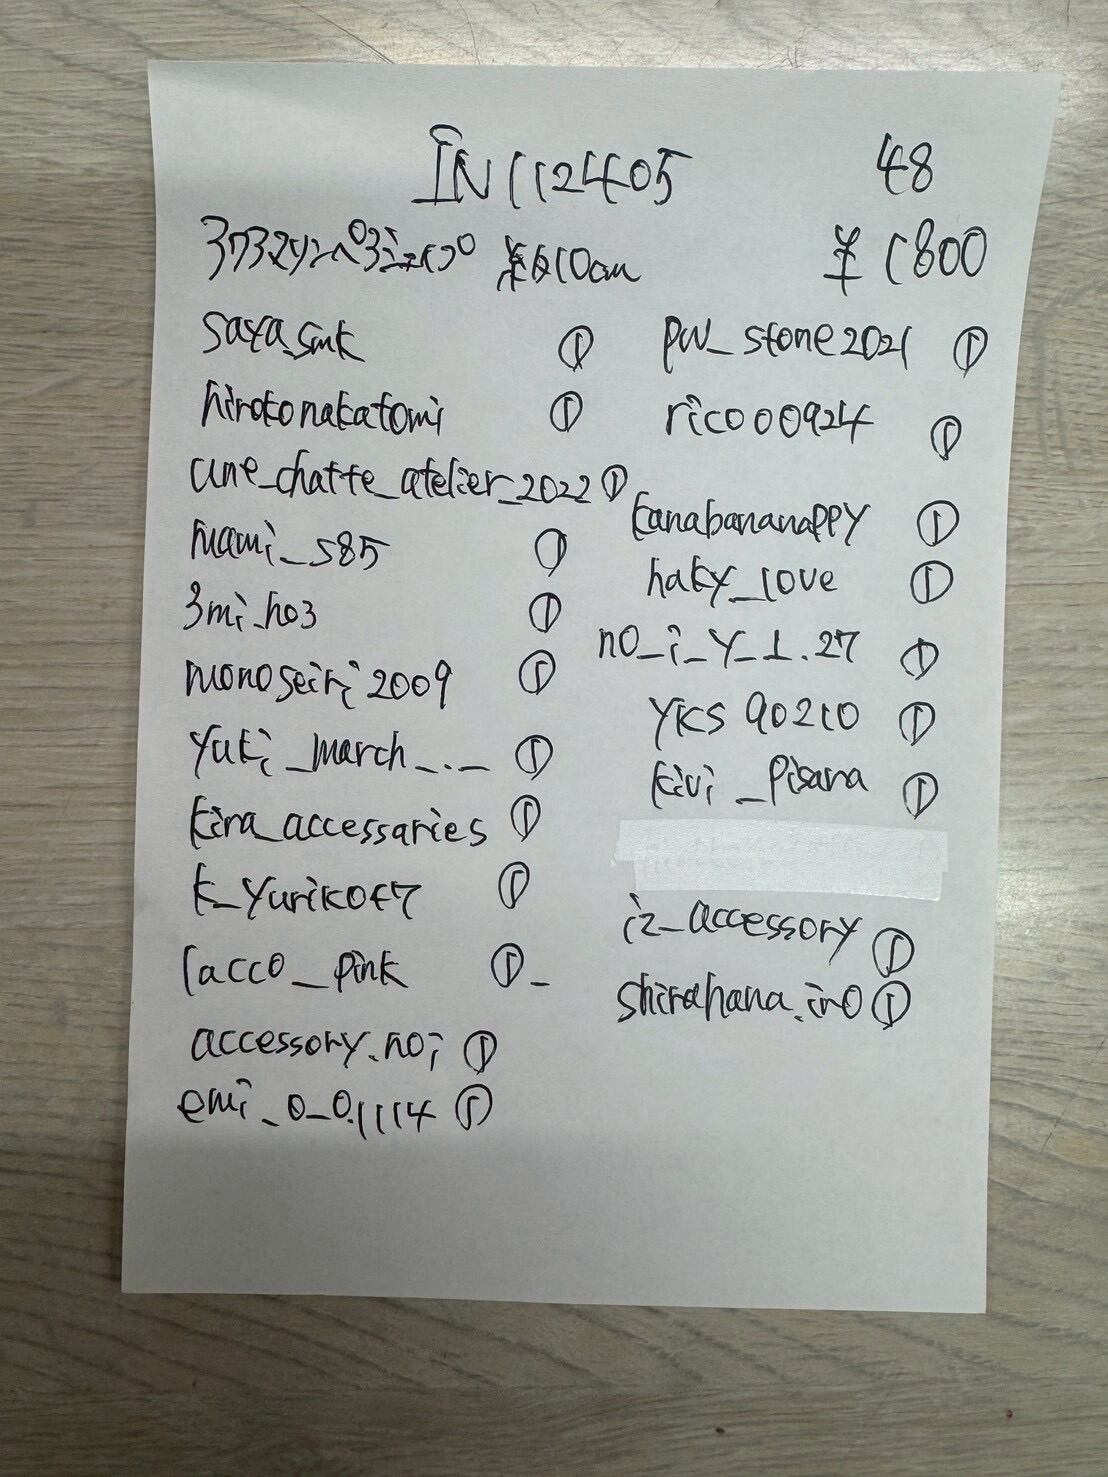 IN112405 48
アクアマリンペアシェイプ 約10cm ¥1800
saya_smk ①
hirokonakatomi ①
une_chatte_atelier_2022 ①
mami_s85 ①
3mi_ho3 ①
monoseiri2009 ①
yuki_march_._ ①
kira_accessaries ①
k_yuriko47 ①
lacco_pink ①-
accessory.noi ①
emi_o_0.1114 ①
pw_stone2021 ①
rico00924 ①
kanabananappy ①
haky_love ①
no_i_y_1.27 ①
yks90210 ①
kivi_pisara ①
iz_accessory ①
shirahana.iro ①